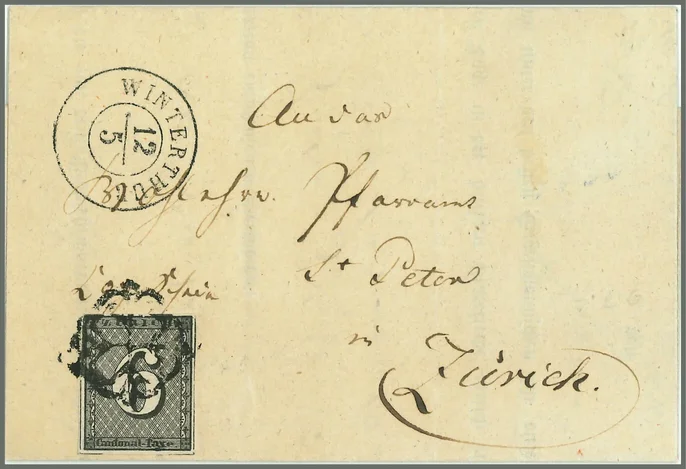 WINTERTHUR
12
5
An das
Pfarramt
St Peter
in
Zürich.
ZÜRICH
6
Cantonal-Taxe